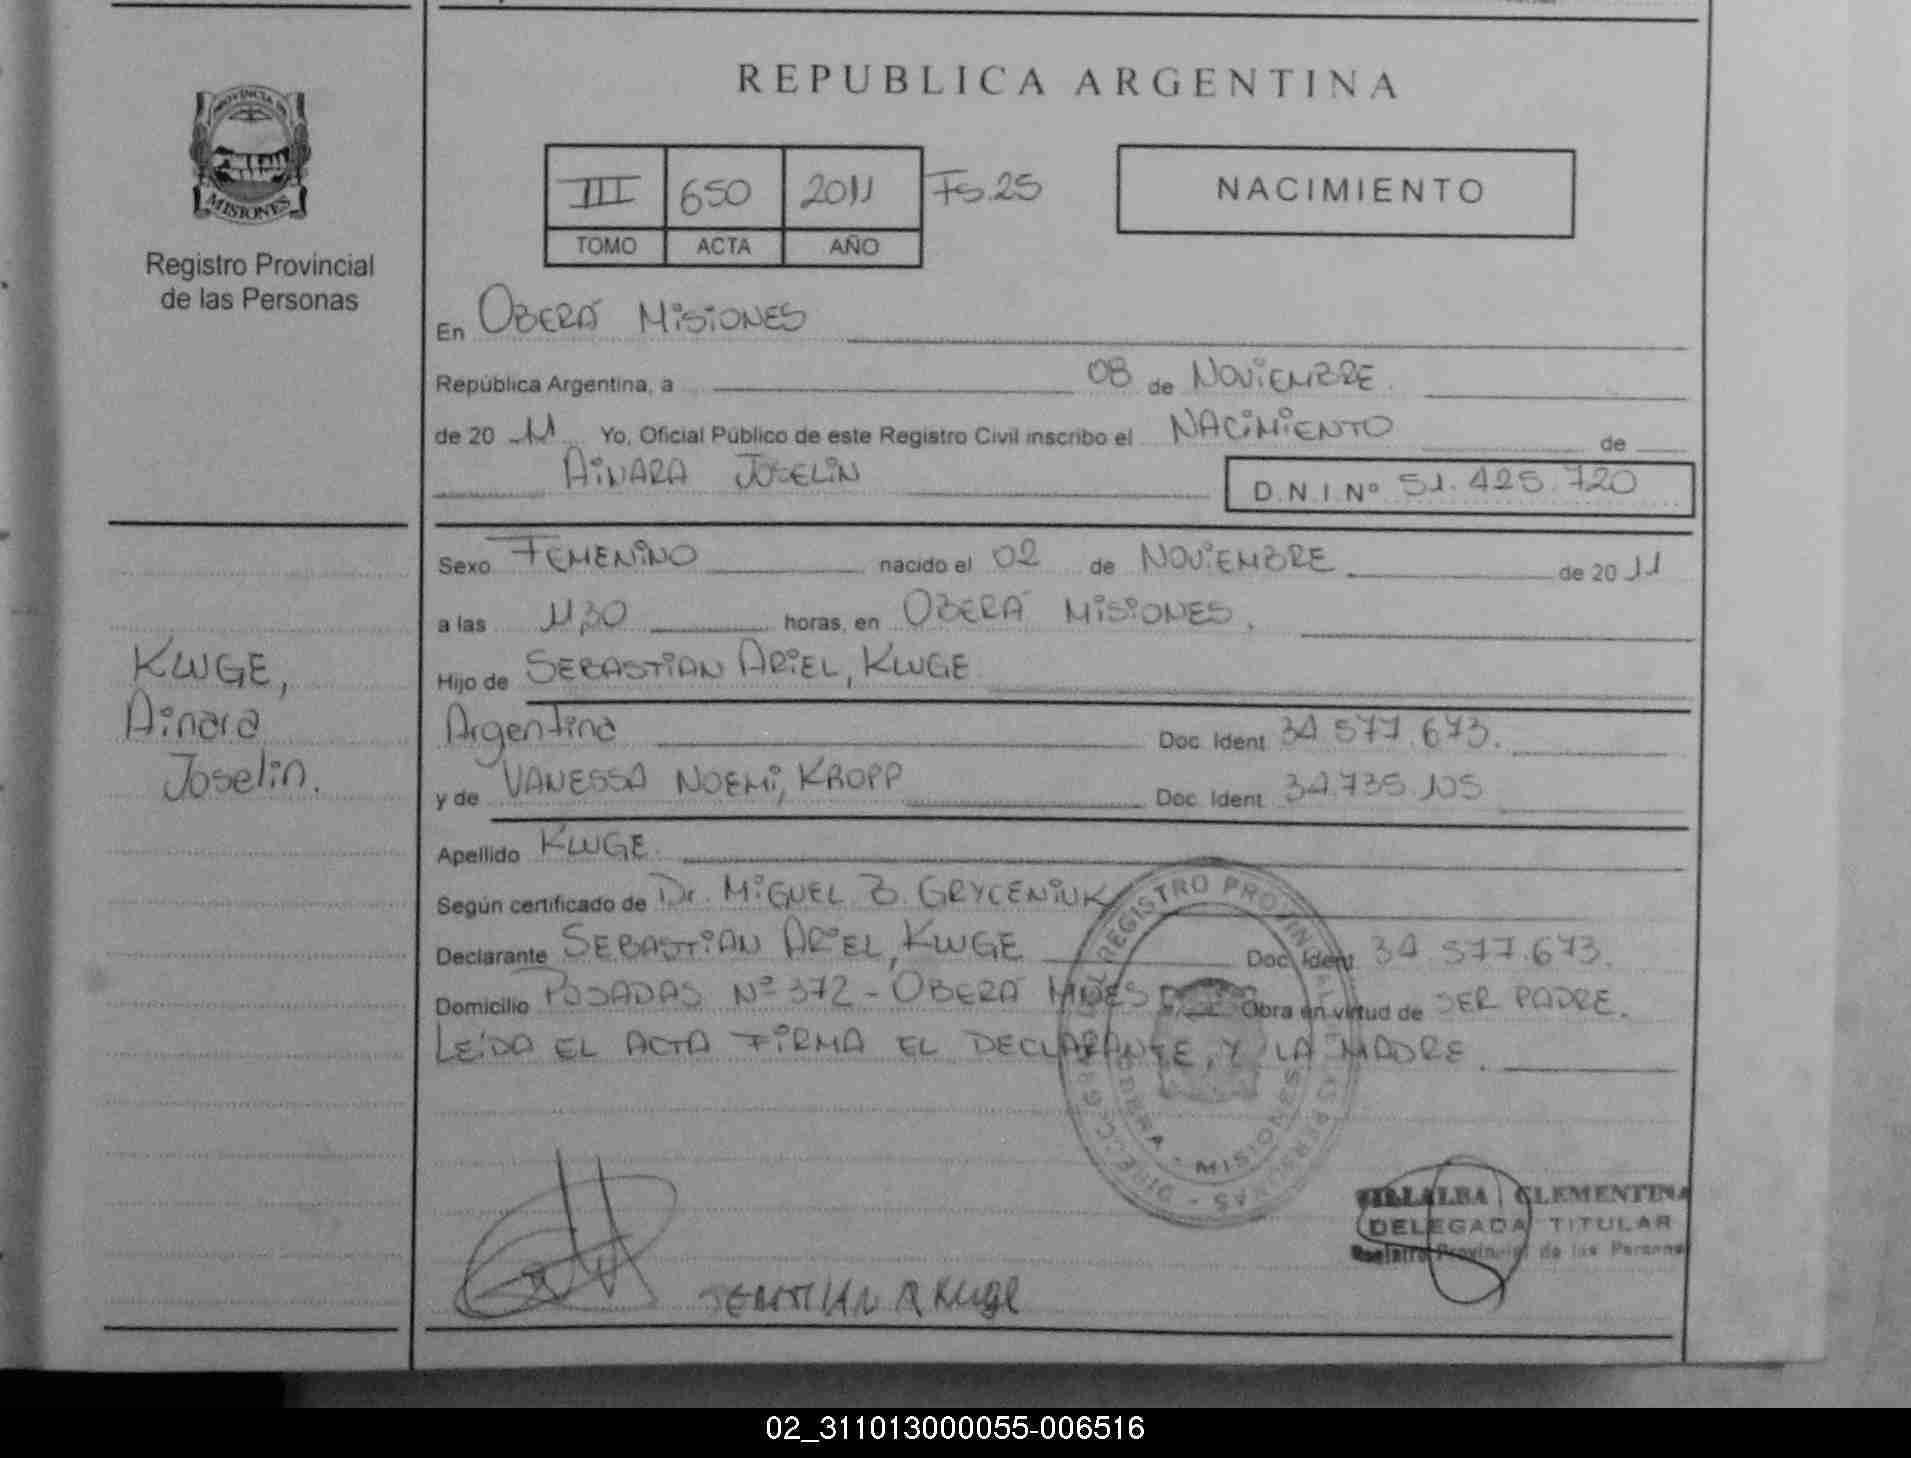 REPUBLICA ARGENTINA
PROVINCIA DE
MISIONES
Registro Provincial
de las Personas
III 650 2011 Fs.25
TOMO ACTA AÑO
NACIMIENTO
En OBERÁ MISIONES
República Argentina, a 08 de NOVIEMBRE.
de 20 11 Yo, Oficial Público de este Registro Civil inscribo el NACIMIENTO de
AINARA JOSELIN D.N.I. Nº 51.425.720
Sexo FEMENINO nacido el 02 de NOVIEMBRE de 2011
a las 11,30 horas, en OBERÁ MISIONES.
Hijo de SEBASTIAN ARIEL, KLUGE
Argentina Doc. Ident. 34.577.673.
y de VANESSA NOEMI, KROPP Doc. Ident. 34.735.105
Apellido KLUGE.
Según certificado de Dr. MIGUEL B. GRYCENIUK
Declarante SEBASTIAN ARIEL, KLUGE Doc. Ident. 34.577.673.
Domicilio POSADAS Nº 372 - OBERÁ MNES Obra en virtud de SER PADRE.
LEIDA EL ACTA FIRMA EL DECLARANTE, Y LA MADRE.
KLUGE,
Ainara
Joselin.
REGISTRO PROVINCIAL
PERSONAS
MISIONES
SEBASTIAN A Kluge
VILLALBA CLEMENTINA
DELEGADA TITULAR
Registro Provincial de las Personas
02_311013000055-006516